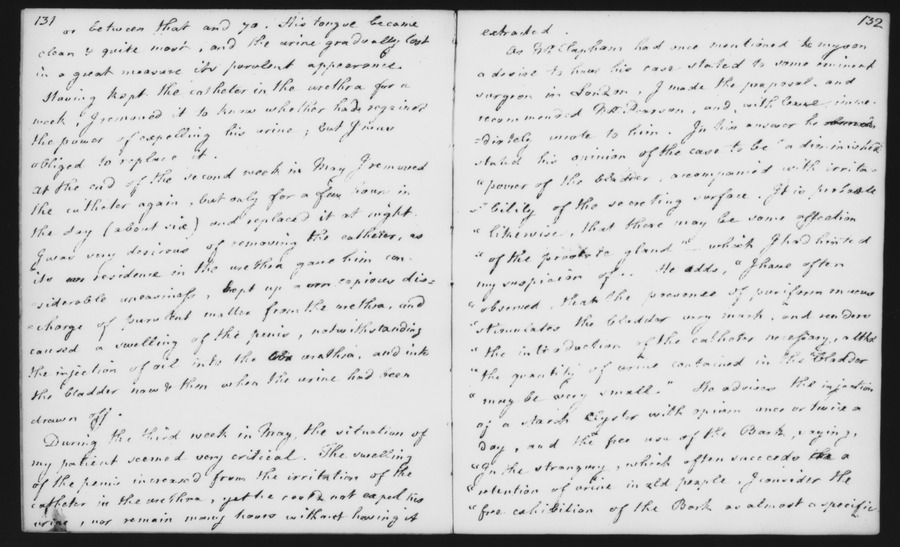 131
or between that and 70. His tongue became
clean & quite moist, and the urine gradually lost
in a great measure its purulent appearance.
Having kept the catheter in the urethra for a
week I removed it to know whether had regained
the power of expelling his urine; but I was
obliged to replace it.
At the end of the second week in May I removed
the catheter again, but only for a few hours in
the day (about six) and replaced it at night.
I was very desirous of removing the catheter, as
its residence in the urethra gave him con-
siderable uneasiness, kept up a copious dis=
=charge of purulent matter from the urethra, and
caused a swelling of the penis, notwithstanding
the injection of oil into the urethra, and into
the bladder now & then when the urine had been
drawn off.
During the third week in May, the situation of
my patient seemed very critical. The swelling
of the penis increased from the irritation of the
catheter in the urethra, yet he could not expel his
urine, nor remain many hours without having it
132
extracted.
As Mr Clapham had once mentioned to my son
a desire to have his case stated to some eminent
surgeon in London, I made the proposal, and
recommended Mr Pearson, and, with leave, imme-
=diately wrote to him. In his answer he
stated his opinion of the case to be "a diminished
"power of the bladder, accompanied with irrita-
"bility of the secreting surface. It is probable
"likewise, that there may be some affection
"of the prostate gland", which I had hinted
my suspicion of. He adds, "I have often
"observed that the presence of puriform mucus
"stimulates the bladder very much, and renders
"the introduction of the catheter necessary, altho
"the quantity of urine contained in the bladder
"may be very small." He advises the injection
of a starch clyster with opium once or twice a
day, and the free use of the Bark, saying,
"In the strangury, which often succeeds a
"retention of urine in old people, I consider the
"free exhibition of the Bark as almost a specific